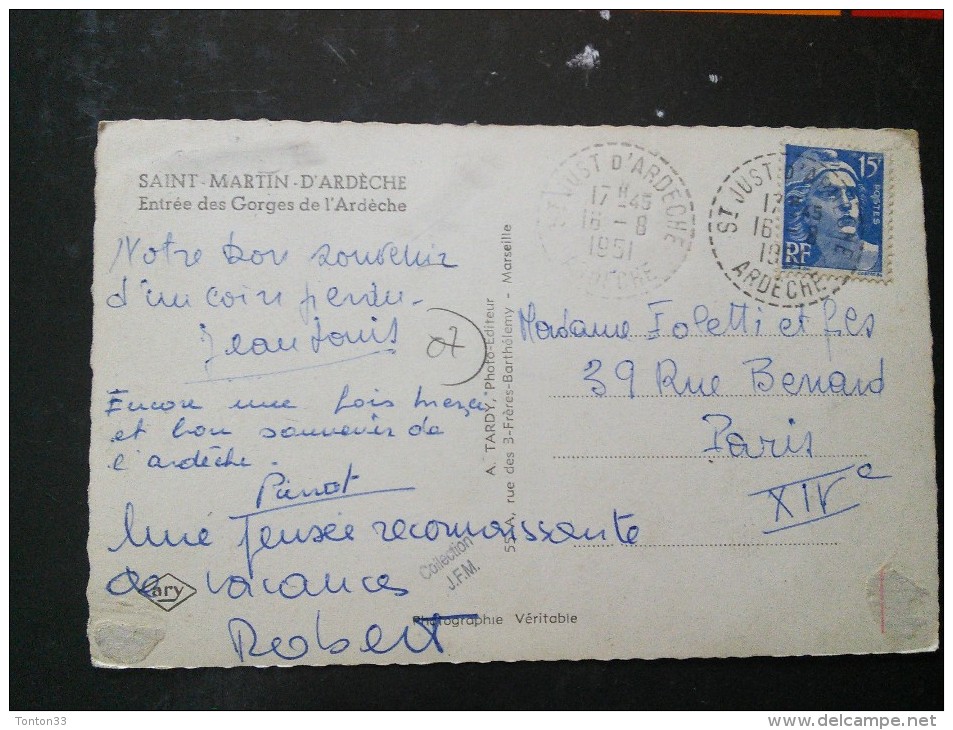 SAINT-MARTIN-D'ARDÈCHE
Entrée des Gorges de l'Ardèche
Notre bon souvenir
d'un coin perdu.
Jean Louis
07
Encore une fois merci
et bon souvenir de
l'ardèche.
Pierrot
Une pensée reconnaissante
de vacances
Robert
ary
Collection
J.F.M.
Photographie Véritable
A. TARDY, Photo-Editeur
55A, rue des 3-Frères-Barthélemy - Marseille
ST JUST D'ARDÈCHE
17H45
16-8
1951
ARDÈCHE
ST JUST D'ARDÈCHE
17H45
16-8
1951
ARDECHE
15F
POSTES
RF
Madame Foletti et fils
39 Rue Benard
Paris
XIVe
Tonton33
www.delcampe.net